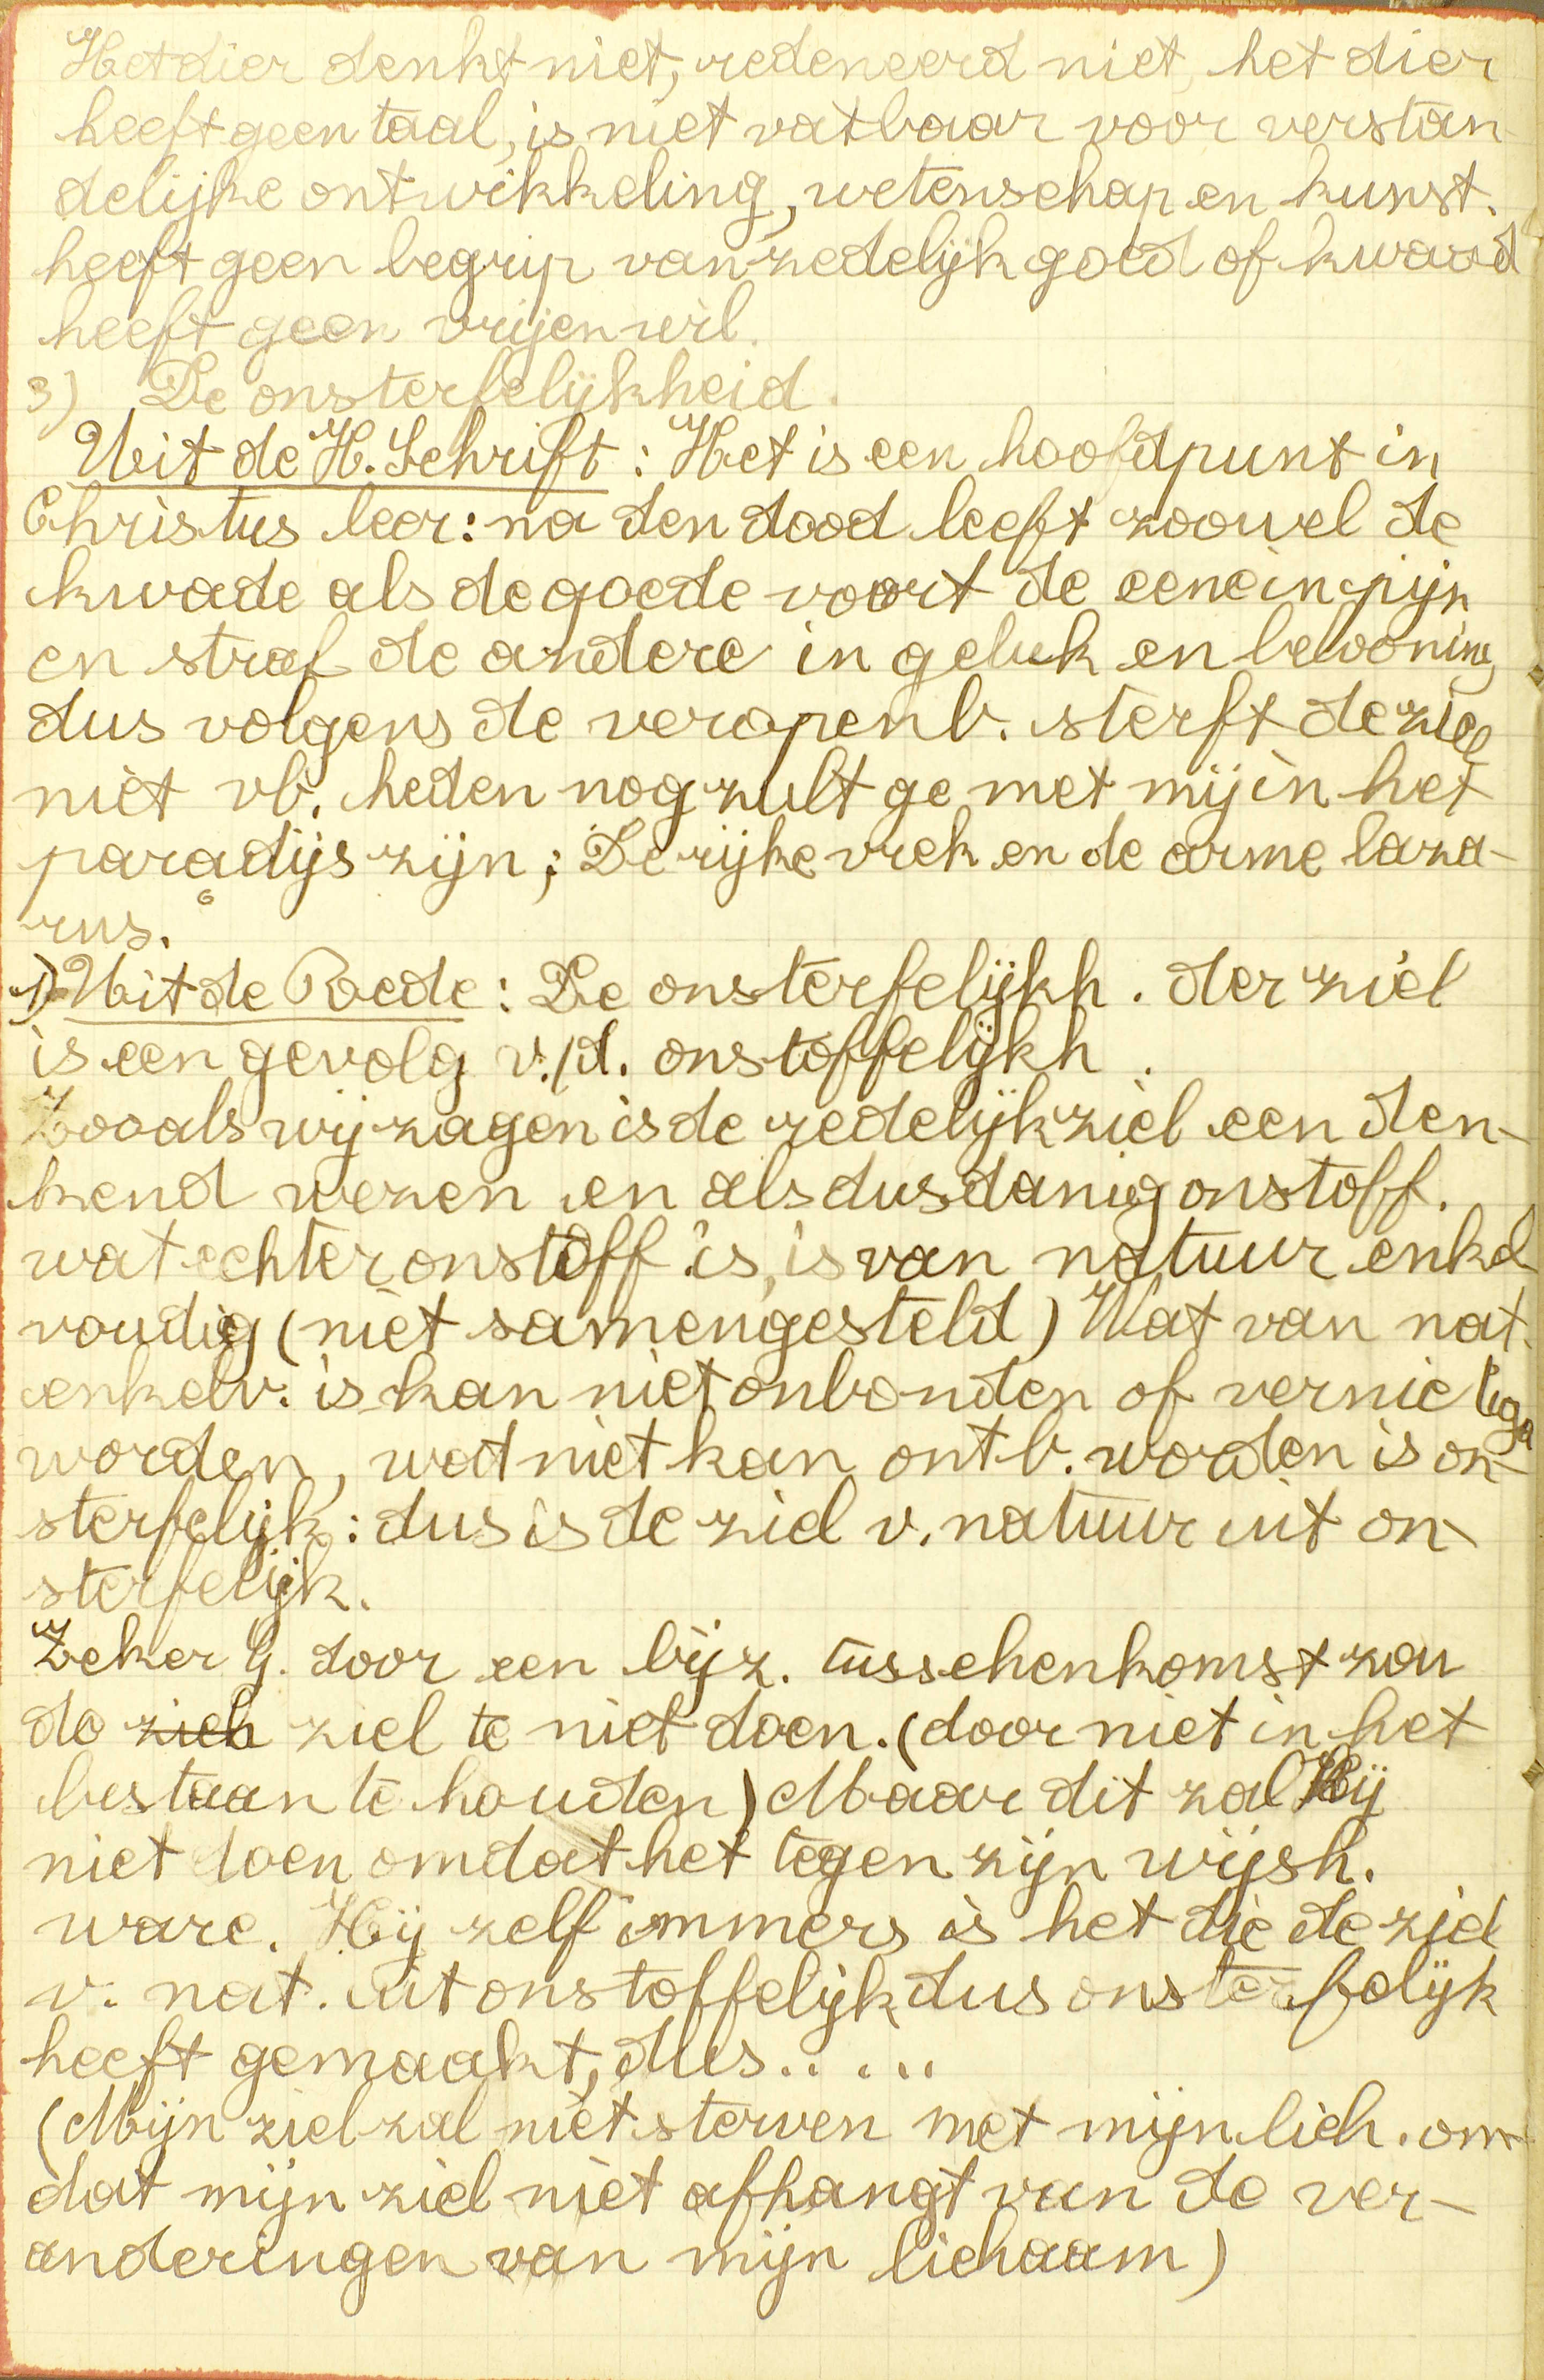 Het dier denkt niet, redeneerd niet, het dier
heeft geen taal, is niet vatbaar voor verstan
delijke ontwikkeling, wetenschap en kunst.
heeft geen begrip van zedelijk goed of kwaad
heeft geen vrijen wil.
3) De onsterfelijkheid.
Uit de H. Schrift : Het is een hoofdpunt in
Christus leer: na den dood leeft zoowel de
kwade als de goede voort de eene in pijn
en straf de andere in geluk en belooning
dus volgens de veropenb. sterft de ziel
niet vb. heden nog zult ge met mij in het
paradijs zijn ; De rijke vrek en de arme laza-
rus.
1) Uit de Rede : De onsterfelijkh. der ziel
is een gevolg v./d. onstoffelijkh.
Zooals wij zagen is de redelijk ziel een den-
kend wezen en als dusdanig onstoff.
wat echter onstoff is, is van natuur enkel
voudig (niet samengesteld) Wat van nat.
enkelv. is kan niet onbonden of vernietigd
worden, wat niet kan ontb. worden is on-
sterfelijk : dus is de ziel v. natuur uit on-
sterfelijk.
Zeker G. door een bijz. tusschenkomst zou
de zieh ziel te niet doen. (door niet in het
bestaan te houden) Maar dit zal Hij
niet doen omdat het tegen zijn wijsh.
ware. Hij zelf immers is het die de ziel
v. nat. uit onstoffelijk dus onsterfelijk
heeft gemaakt, dus.. ...
(Mijn ziel zal niet sterven met mijn lich. om-
dat mijn ziel niet afhangt van de ver-
anderingen van mijn lichaam)